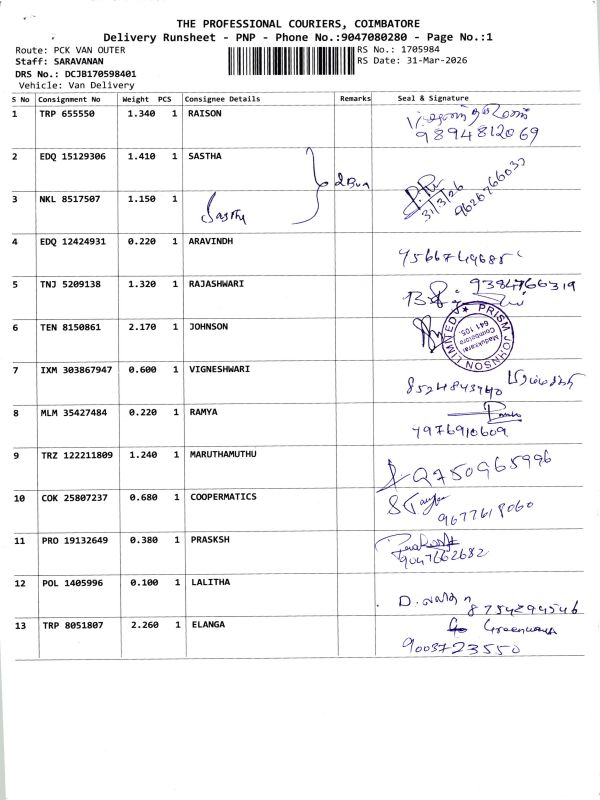 THE PROFESSIONAL COURIERS, COIMBATORE
Delivery Runsheet - PNP - Phone No.:9047080280 - Page No.:1
Route: PCK VAN OUTER RS No.: 1705984
Staff: SARAVANAN RS Date: 31-Mar-2026
DRS No.: DCJB170598401
Vehicle: Van Delivery
S No Consignment No Weight PCS Consignee Details Remarks Seal & Signature
1 TRP 655550 1.340 1 RAISON
9894812069
2 EDQ 15129306 1.410 1 SASTHA
31/3/26 9626766033
3 NKL 8517507 1.150 1 Sastha
4 EDQ 12424931 0.220 1 ARAVINDH
5 TNJ 5209138 1.320 1 RAJASHWARI 9384766319
6 TEN 8150861 2.170 1 JOHNSON
PRISM JOHNSON LIMITED
Madukkarai
Coimbatore
641 105.
7 IXM 303867947 0.600 1 VIGNESHWARI
8524843740
8 MLM 35427484 0.220 1 RAMYA
7976910609
9 TRZ 122211809 1.240 1 MARUTHAMUTHU
9750965996
10 COK 25807237 0.680 1 COOPERMATICS
9677618060
11 PRO 19132649 0.380 1 PRASKSH
Prakash
9047662682
12 POL 1405996 0.100 1 LALITHA
8754294546
13 TRP 8051807 2.260 1 ELANGA
9003723550